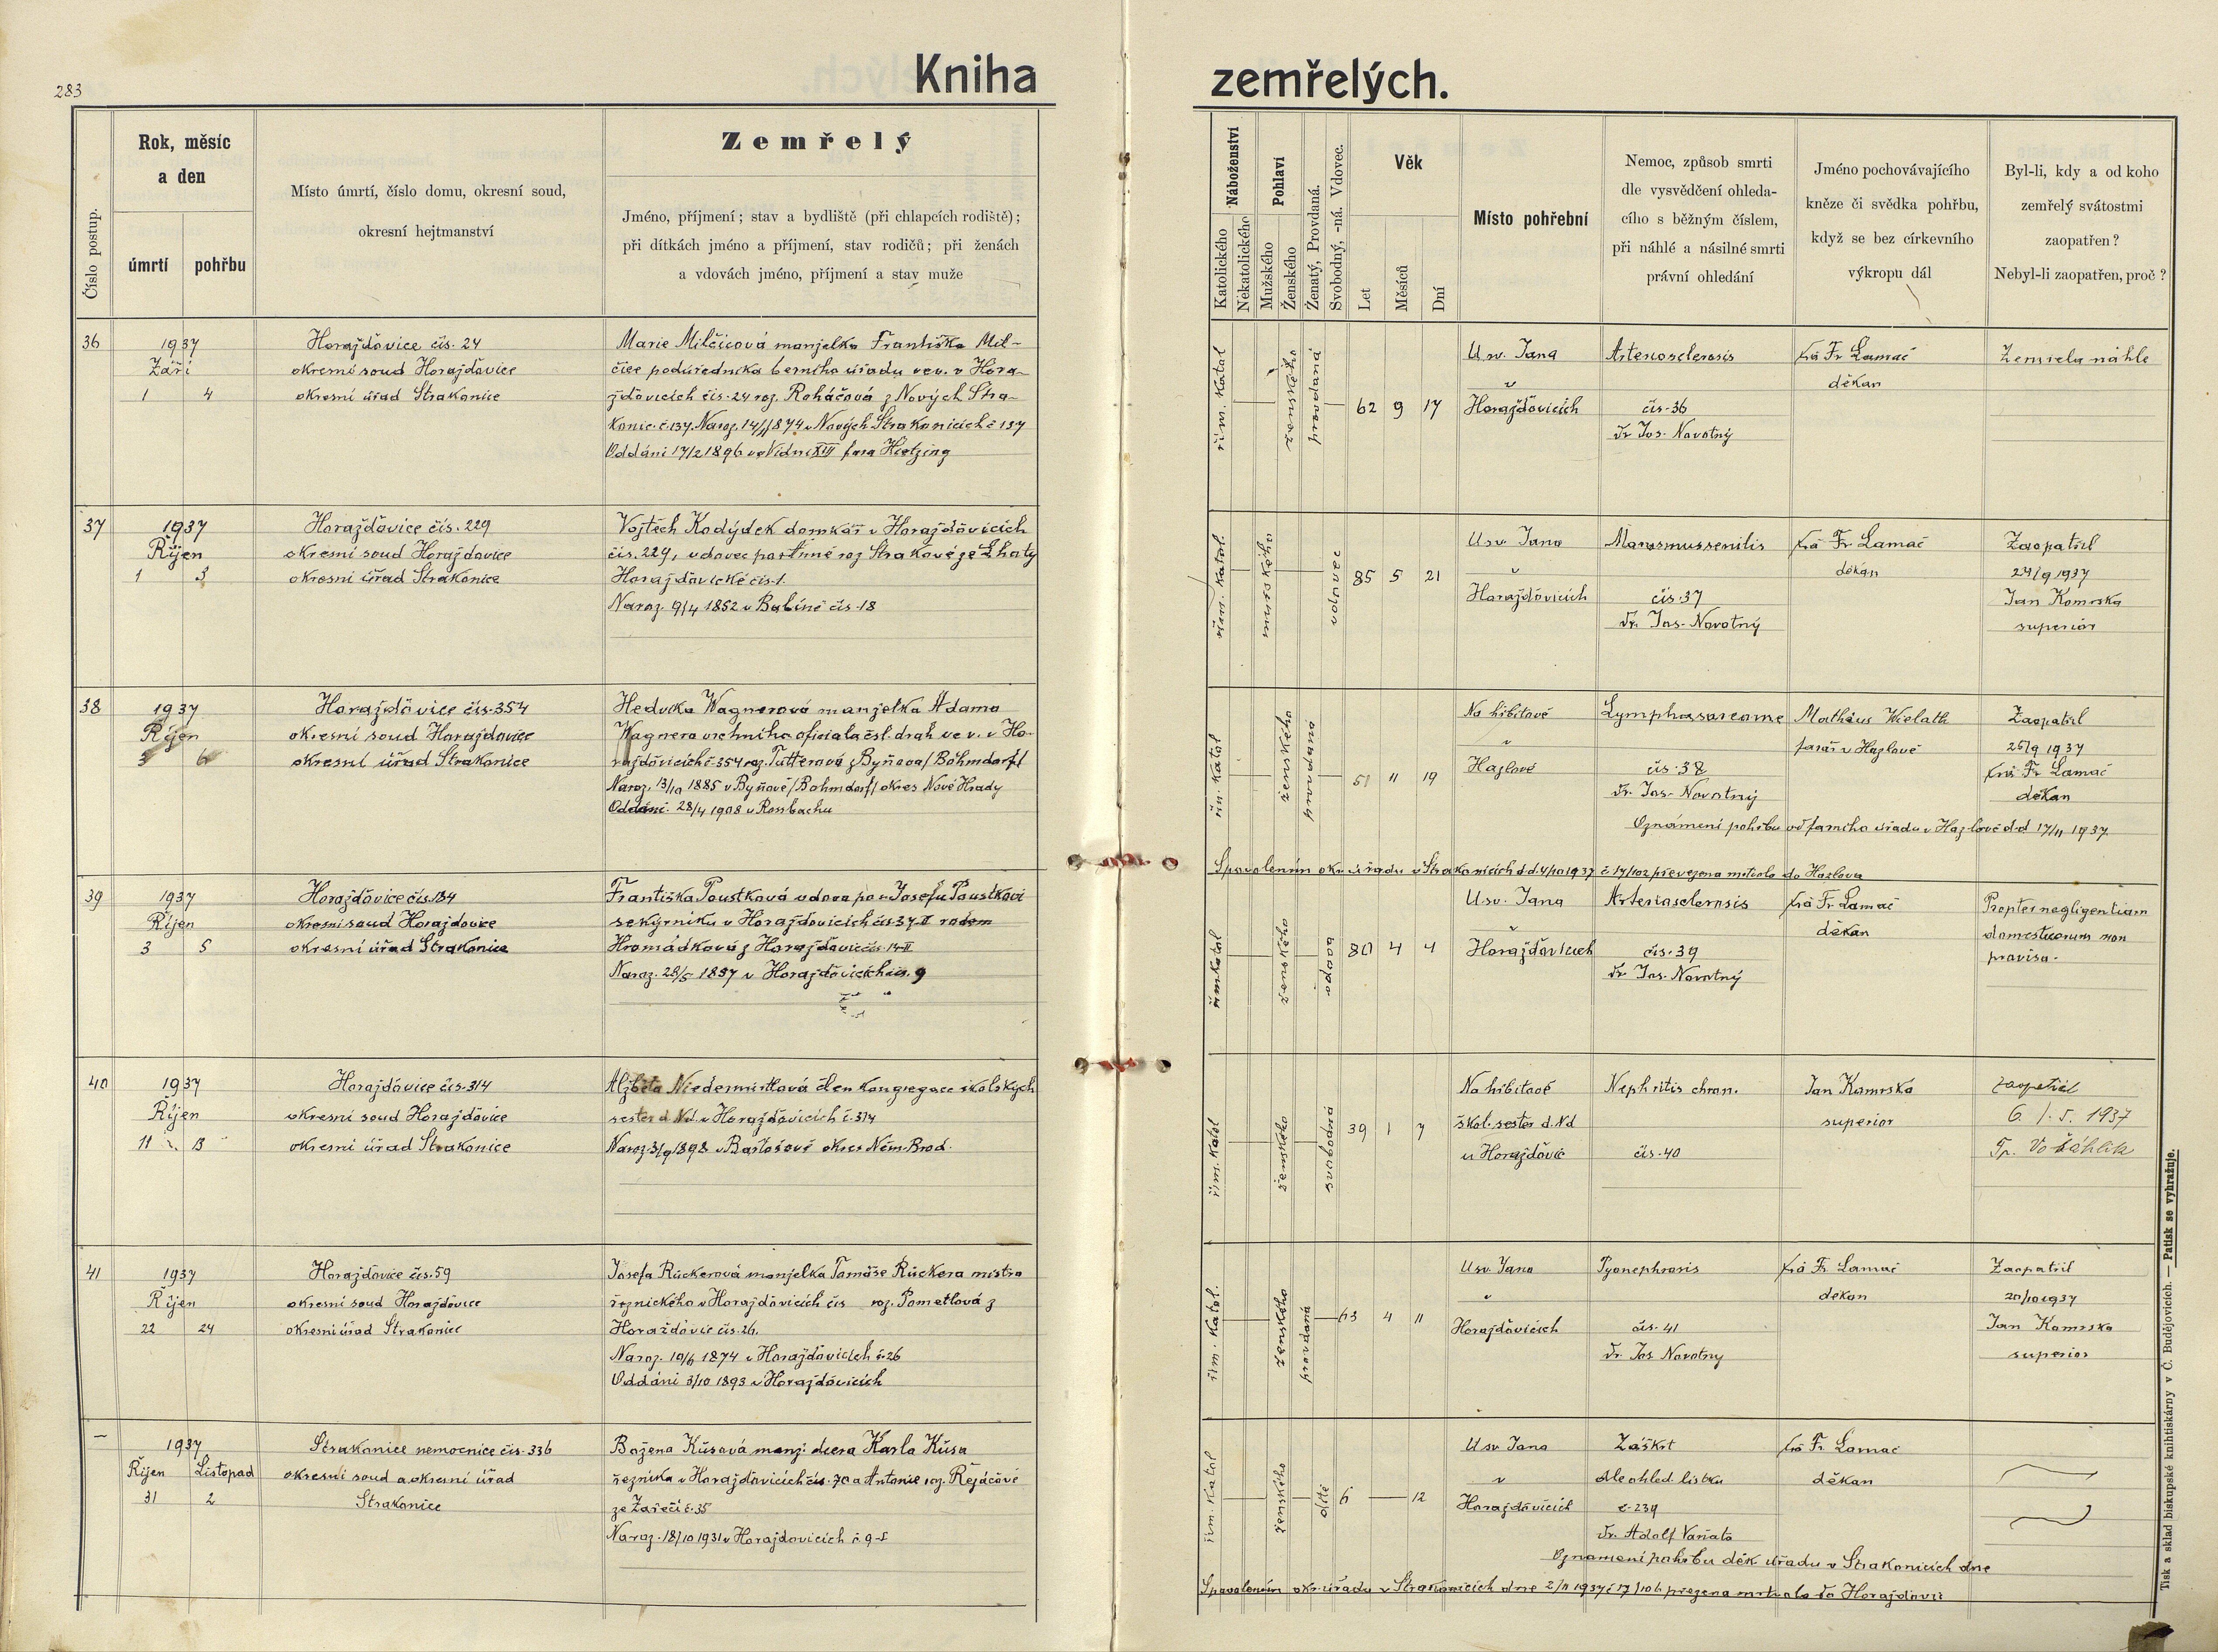 283
Kniha zemřelých.
Číslo postup.
Rok, měsíc
a den
úmrtí
pohřbu
Místo úmrtí, číslo domu, okresní soud,
okresní hejtmanství
Zemřelý
Jméno, příjmení; stav a bydliště (při chlapcích rodiště);
při dítkách jméno a příjmení, stav rodičů; při ženách
a vdovách jméno, příjmení a stav muže
Náboženství
Katolického
Nekatolického
Pohlaví
Mužského
Ženského
Ženatý, Provdaná.
Svobodný, -ná. Vdovec.
Věk
Let
Měsíců
Dní
Místo pohřební
Nemoc, způsob smrti
dle vysvědčení ohleda-
cího s běžným číslem,
při náhlé a násilné smrti
právní ohledání
Jméno pochovávajícího
kněze či svědka pohřbu,
když se bez církevního
výkropu dál
Byl-li, kdy a od koho
zemřelý svátostmi
zaopatřen?
Nebyl-li zaopatřen, proč?
36
1937
Září
1 4
Horažďovice čís. 24
okresní soud Horažďovice
okresní úřad Strakonice
Marie Milčicová manželka Františka Mil-
čice podúředníka berního úřadu ve v. v Hora-
žďovicích čís. 24 roz. Roháčová z Nových Stra-
konic č. 137. Naroz. 14/11 1874 v Nových Strakonicích č 137
Oddáni 17/2 1896 ve Vídni XIII fara Hietzing
řím. katol
ženského
provdaná
62 9 17
U sv. Jana
v
Horažďovicích
Arteriosclerosis
čís. 36
Dr Jos. Novotný
Fr. Lamač
děkan
Zemřela náhle
37
1937
Říjen
1 3
Horažďovice čís. 229
okresní soud Horažďovice
okresní úřad Strakonice
Vojtěch Kodýdek domkář v Horažďovicích
čís. 229, vdovec po Anně roz Strakové ze Lhoty
Horažďovické čís. 1.
Naroz. 9/4 1852 v Balíně čís. 18
řím. katol.
mužského
vdovec
85 5 21
U sv. Jana
v
Horažďovicích
Marasmus senilis
čís. 37
Dr. Jos. Novotný
Fr. Lamač
děkan
Zaopatřil
24/9 1937
Jan Komrska
superior
38
1937
Říjen
3 6
Horažďovice čís. 354
okresní soud Horažďovice
okresní úřad Strakonice
Hedvika Wagnerová manželka Adama
Wagnera vrchního oficiala čsl. drah ve v. v Ho-
ražďovicích č 354 roz. Tutterová z Byňova/Böhmdorf/
Naroz. 13/10 1885 v Byňově/Böhmdorf/ okres Nové Hrady
Oddáni. 28/4 1908 v Rossbachu
řím. katol
ženského
provdaná
51 11 19
Na hřbitově
v
Hazlově
Lymphosarcome
čís. 38
Dr. Jos. Novotný
Mathäus Wielath
farář v Hazlově
Zaopatřil
25/9 1937
Fr. Lamač
děkan
Oznámení pohřbu od farního úřadu v Hazlově d.d 17/11 1937.
S povolením okr. úřadu v Strakonicích d.d. 4/10 1937 č 17/102 převezena mrtvola do Hazlova
39
1937
Říjen
3 5
Horažďovice čís. 134
okresní soud Horažďovice
okresní úřad Strakonice
Františka Poustková vdova po Josefu Poustkovi
sekýrníku v Horažďovicích čís. 37-II rodem
Hromádková z Horažďovic čís. 14-II
Naroz. 28/5 1857 v Horažďovicích čís. 9
řím katol
ženského
vdova
80 4 4
U sv. Jana
v
Horažďovicích
Arteriosclerosis
čís. 39
Dr. Jos. Novotný
Fr. Lamač
děkan
Propter negligentiam
domesticorum non
provisa.
40
1937
Říjen
11 13
Horažďovice čís. 314
okresní soud Horažďovice
okresní úřad Strakonice
Alžběta Niedermertlová člen kongregace školských
sester d Nd. v Horažďovicích č. 314
Naroz. 3/9 1898 v Bartošově okres Něm. Brod.
řím. katol
ženského
svobodná
39 1 7
Na hřbitově
škol. sester d. Nd
u Horažďovic
Nephritis chron.
čís. 40
Jan Komrska
superior
zaopatřil
6. /. 5. 1937
41
1937
Říjen
22 24
Horažďovice čís. 59
okresní soud Horažďovice
okresní úřad Strakonice
Josefa Rückerová manželka Tomáše Rückera mistra
řeznického v Horažďovicích čís roz. Pometlová z
Horažďovic čís. 26.
Naroz. 10/6 1874 v Horažďovicích č. 26
Oddáni 3/10 1893 v Horažďovicích
řím. katol.
ženského
provdaná
63 4 11
U sv. Jana
v
Horažďovicích
Pyonephrosis
čís. 41
Dr. Jos. Novotny
Fr. Lamač
děkan
Zaopatřil
20/10 1937
Jan Komrska
superior
—
1937
Říjen Listopad
31 2
Strakonice nemocnice čís. 336
okresní soud a okresní úřad
Strakonice
Božena Kůsová manž. dcera Karla Kůsa
řezníka v Horažďovicích čís. 70 a Antonie roz. Řejáčové
ze Zářečí č. 35
Naroz. 18/10 1931 v Horažďovicích č. 9-I
řím. katol
ženského
dítě
6 — 12
U sv Jana
v
Horažďovicích
Záškrt
dle ohled. lístku
č. 239
Dr. Adolf Vaňata
Fr. Lamač
děkan
Oznámení pohřbu děk. úřadu v Strakonicích dne
S povolením okr. úřadu v Strakonicích dne 2/11 1937 č 17/106 přezena mrtvola do Horažďovic
Tisk a sklad biskupské knihtiskárny v Č. Budějovicích. — Patisk se vyhražuje.